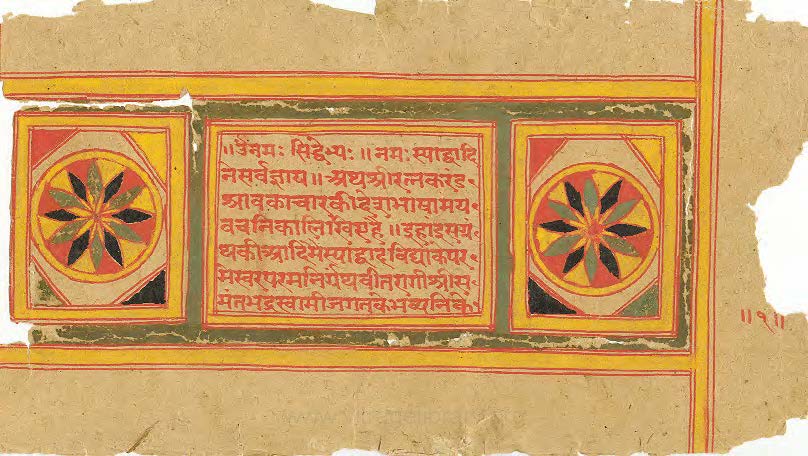 ॥ उँनमः सिद्धेभ्यः ॥ नमः स्याद्वादि
नेसर्वज्ञाय ॥ अथश्रीरत्नकरंड
श्रावकाचारकीदेशभाषामय
वचनिकालिखियेहै ॥ इहांइसग्रं
थकीआदिमेस्याद्वादविद्याकेपर
मेस्वरपरमनिर्ग्रंथवीतरागीश्रीस
मंतभद्रस्वामीजगतकेभव्यनिके
॥१॥